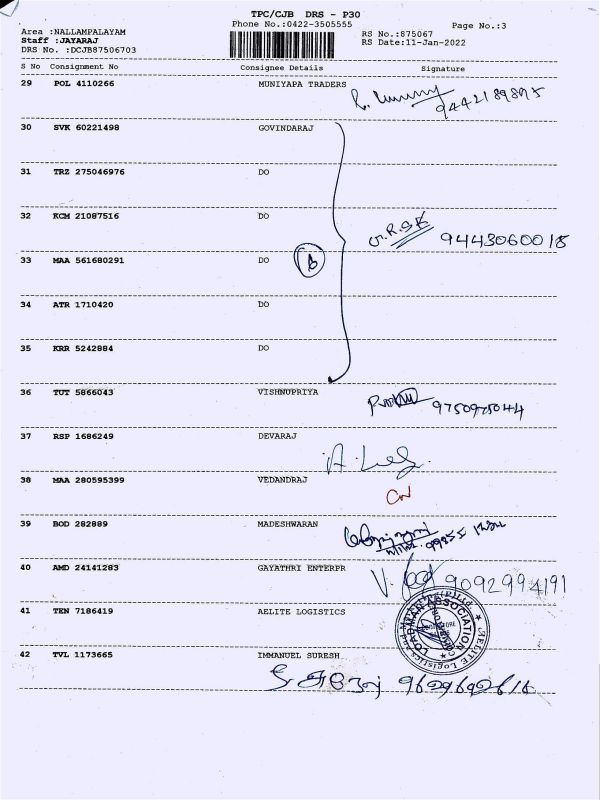 TPC/CJB DRS - P30
Phone No.:0422-3505555
Page No.:3
Area :NALLAMPALAYAM
Staff :JAYARAJ
DRS No. :DCJB87506703
RS No.:875067
RS Date:11-Jan-2022
S No Consignment No Consignee Details Signature
29 POL 4110266 MUNIYAPA TRADERS
9442189895
30 SVK 60221498 GOVINDARAJ
31 TRZ 275046976 DO
32 KCM 21087516 DO
9443060018
33 MAA 561680291 DO
6
34 ATR 1710420 DO
35 KRR 5242884 DO
36 TUT 5866043 VISHNUPRIYA
9750975044
37 RSP 1686249 DEVARAJ
38 MAA 280595399 VEDANDRAJ
39 BOD 282889 MADESHWARAN
40 AMD 24141283 GAYATHRI ENTERPR
9092994191
41 TEN 7186419 AELITE LOGISTICS
LOADMAN ASSOCIATION
42 TVL 1173665 IMMANUEL SURESH
9629692616